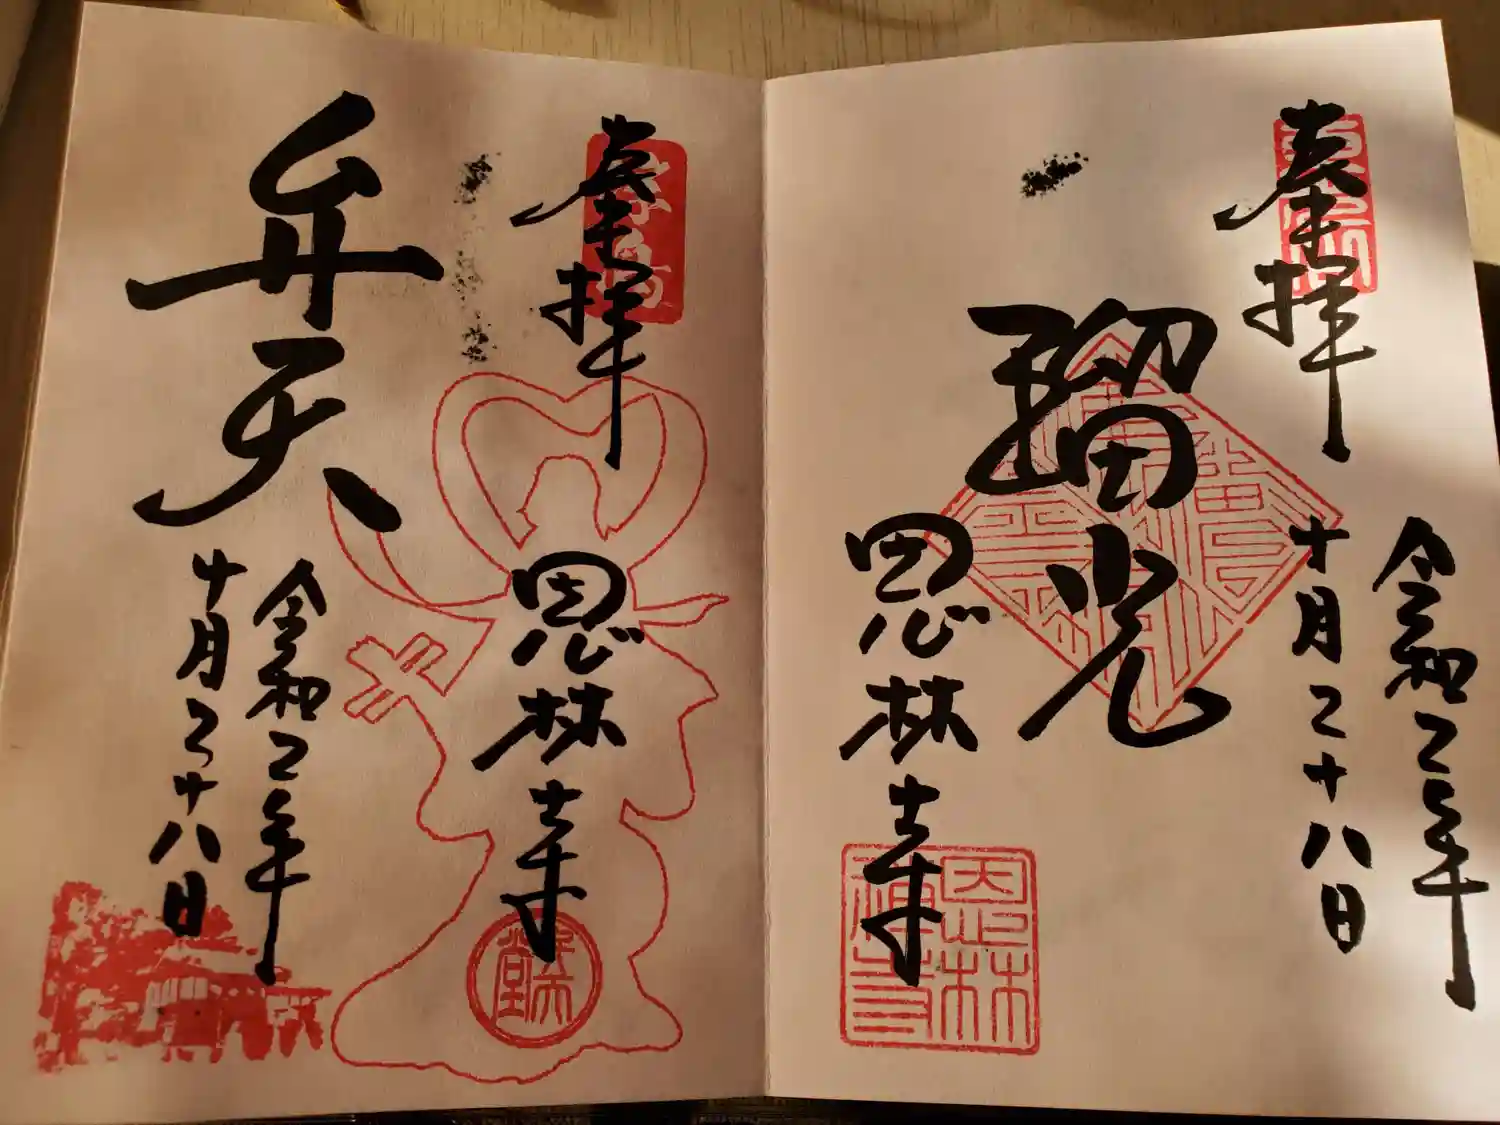 奉拝
令和二年
十月二十八日
瑠光
恩林寺
恩林
禅寺
奉拝
恩林寺
弁天
令和二年
十月二十八日
弁天
堂